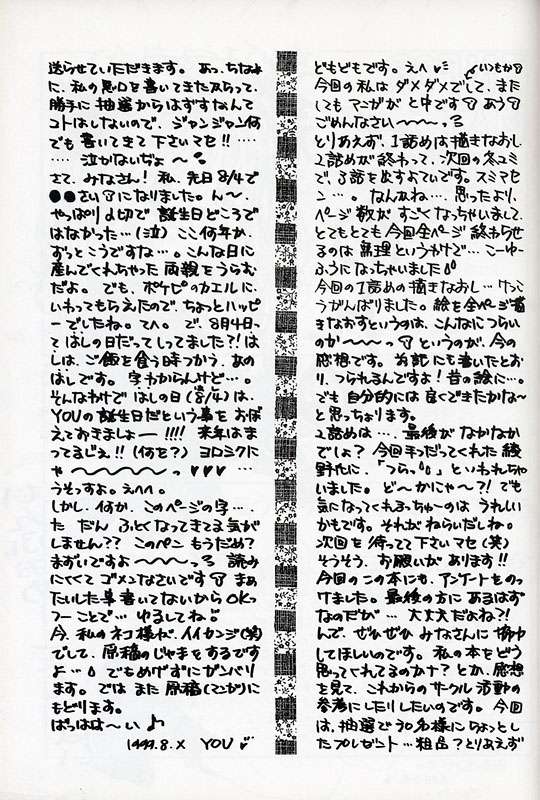 どもどもです。えへ いつもか
今回の私は ダメダメでして、また
しても マンガが と中です あう
ごめんなさい〜〜〜っ
とりあえず、1話めは描きなおし
2話めが終わって、次回の冬コミ
で、3話を出すよていです。スミマセ
ン…。なんかね…、思ったより、
ページ数が すごくなっちゃいまして、
とてもとても 今回全ページ終わらせ
るのは無理というわけで…こーゆー
ふうになっちゃいました
今回の1話めの描きなおし…けっこ
うがんばりました。絵を全ページ描
きなおすというのは、こんなにつらい
のか〜〜〜っ というのが、今の
感想です。 にも書いてたとお
り、つられるんですよ!昔の絵に…。
でも 自分的には 良くできたかな〜
と思っちょります。
2話めは…、最後がなかなか
でしょ?今回手つだってくれた綾
野ちに、「つらっ」といわれちゃ
いました。ど〜かにゃ〜?!でも
気になってくれるっちゅーのは うれしい
かもです。それがねらいだしね。
次回を待ってて下さいマセ(笑)
そうそう、お願いが あります!!
今回のこの本にも、アンケートをのっ
けました。最後の方に あるはず
なのだが…大丈夫だよね?!
んで、ぜひぜひ みなさんに
してほしいのです。私の本をどう
思ってくれてるのかナ?とか、感想
を見て、これからのサークル活動の
参考にしたりしたいのです。今回
は、抽選で30名様にちょっとし
たプレゼント…粗品?とりあえず
送らせていただきます。あっ、ちなみ
に、私の悪口を書いてきたからって、
勝手に抽選からはずすなんて
コトはしないので、ジャンジャン何
でも書いてきて下さいマセ!!……
……泣かないぢょ〜
さて、みなさん!私、先日8/4で
●●さいになりました。ん〜、
やっぱり〆切で 誕生日どころで
はなかった…(泣)ここ何年か、
ずっとこうですな…。こんな日に
産んでくれちゃった両親をうらむ
だよ。でも、ポケピのカエルに、
いわってもらえたので、ちょっとハッピ
ーでしたね。てへ。で、8月4日っ
て はしの日だってしってました?!は
しは、ご飯を食う時つかう、あの
はしです。字わからんけど…。
そんなわけで はしの日(8/4)は、
YOUの誕生日だという事をおぼ
えておきましょー!!!! 来年はま
ってるじょ!!(何を?) ヨロシクに
ゃ〜〜〜〜〜っ ♥♥♥……
うそっすよ。えへへ。
しかし、何か、このページの字…、
た だん ふとくなってきてる気が
しません??このペン もうだめ?
まずいですよ〜〜〜っ 読み
にくくて ゴメンなさいです まあ
たいした事書いてないからOKっ
つーことで…ゆるしてね
今、私のネコ様が、イイカンジ(笑)
でして、原稿のじゃまをするです
よ… でもめげずにガンバリ
ます。では また原稿(マンガ)に
もどります。
ばっはは〜い♪
1997.8.X YOU